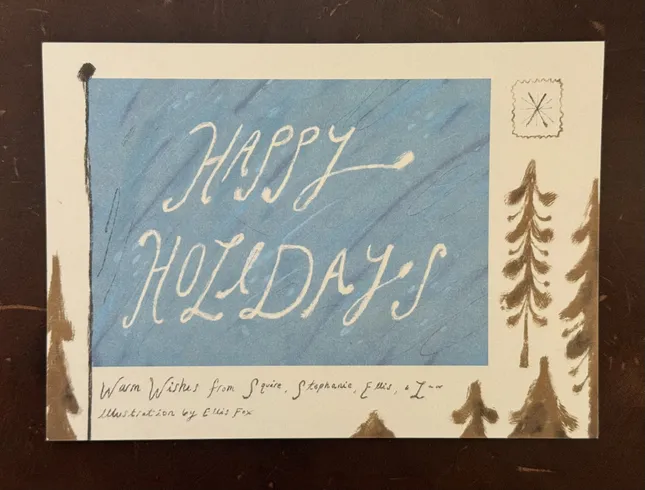 HAPPY
HOLIDAYS
Warm Wishes from Squire, Stephanie, Ellis, &
Illustration by Ellis Fox